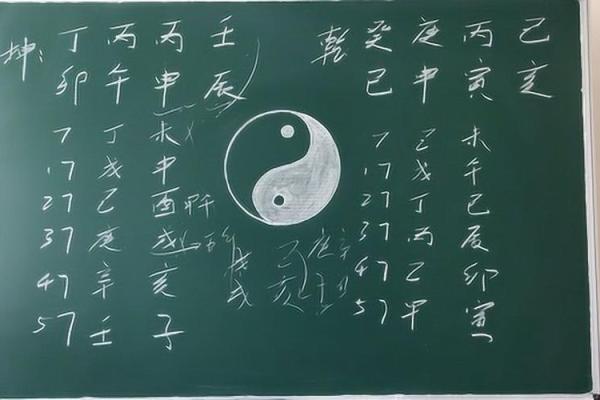 坤: 丁 丙 丙 壬
卯 午 申 辰
7 丁 未
17 戊 申
27 己 酉
37 庚 戌
47 辛 亥
57 壬 子
乾 癸 庚 丙 己
巳 申 寅 亥
7 己 未
17 戊 午
27 丁 巳
37 丙 辰
47 乙 卯
57 甲 寅
己 庚 辛
亥 子 丑
戊
戌